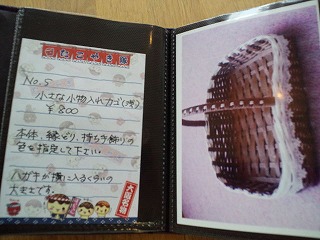 たこやき家
No.5
小さな小物入れカゴ(茶)
¥800
本体、縁どり、持ち手飾りの
色を指定して下さい。
ハガキが横に入るくらいの
大きさです。
大阪名物